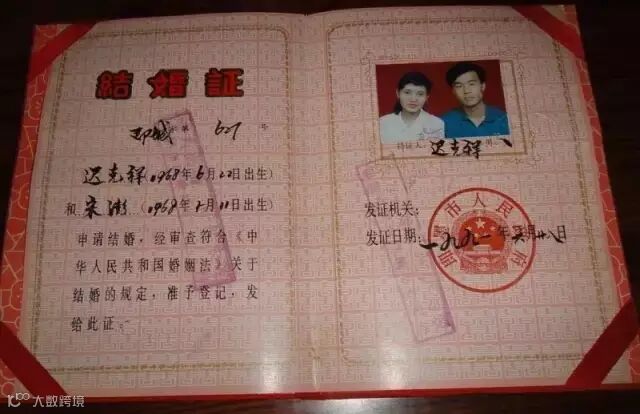 結婚証
第 67 号
迟克祥(1968年6月22日出生)
和 宋 (1968年 月11日出生)
申请结婚,经审查符合《中
华人民共和国婚姻法》关于
结婚的规定,准予登记,发
给此证。
持证人 迟克祥
发证机关:
发证日期:一九九一年 月廿八日
市人民 府
大数跨境